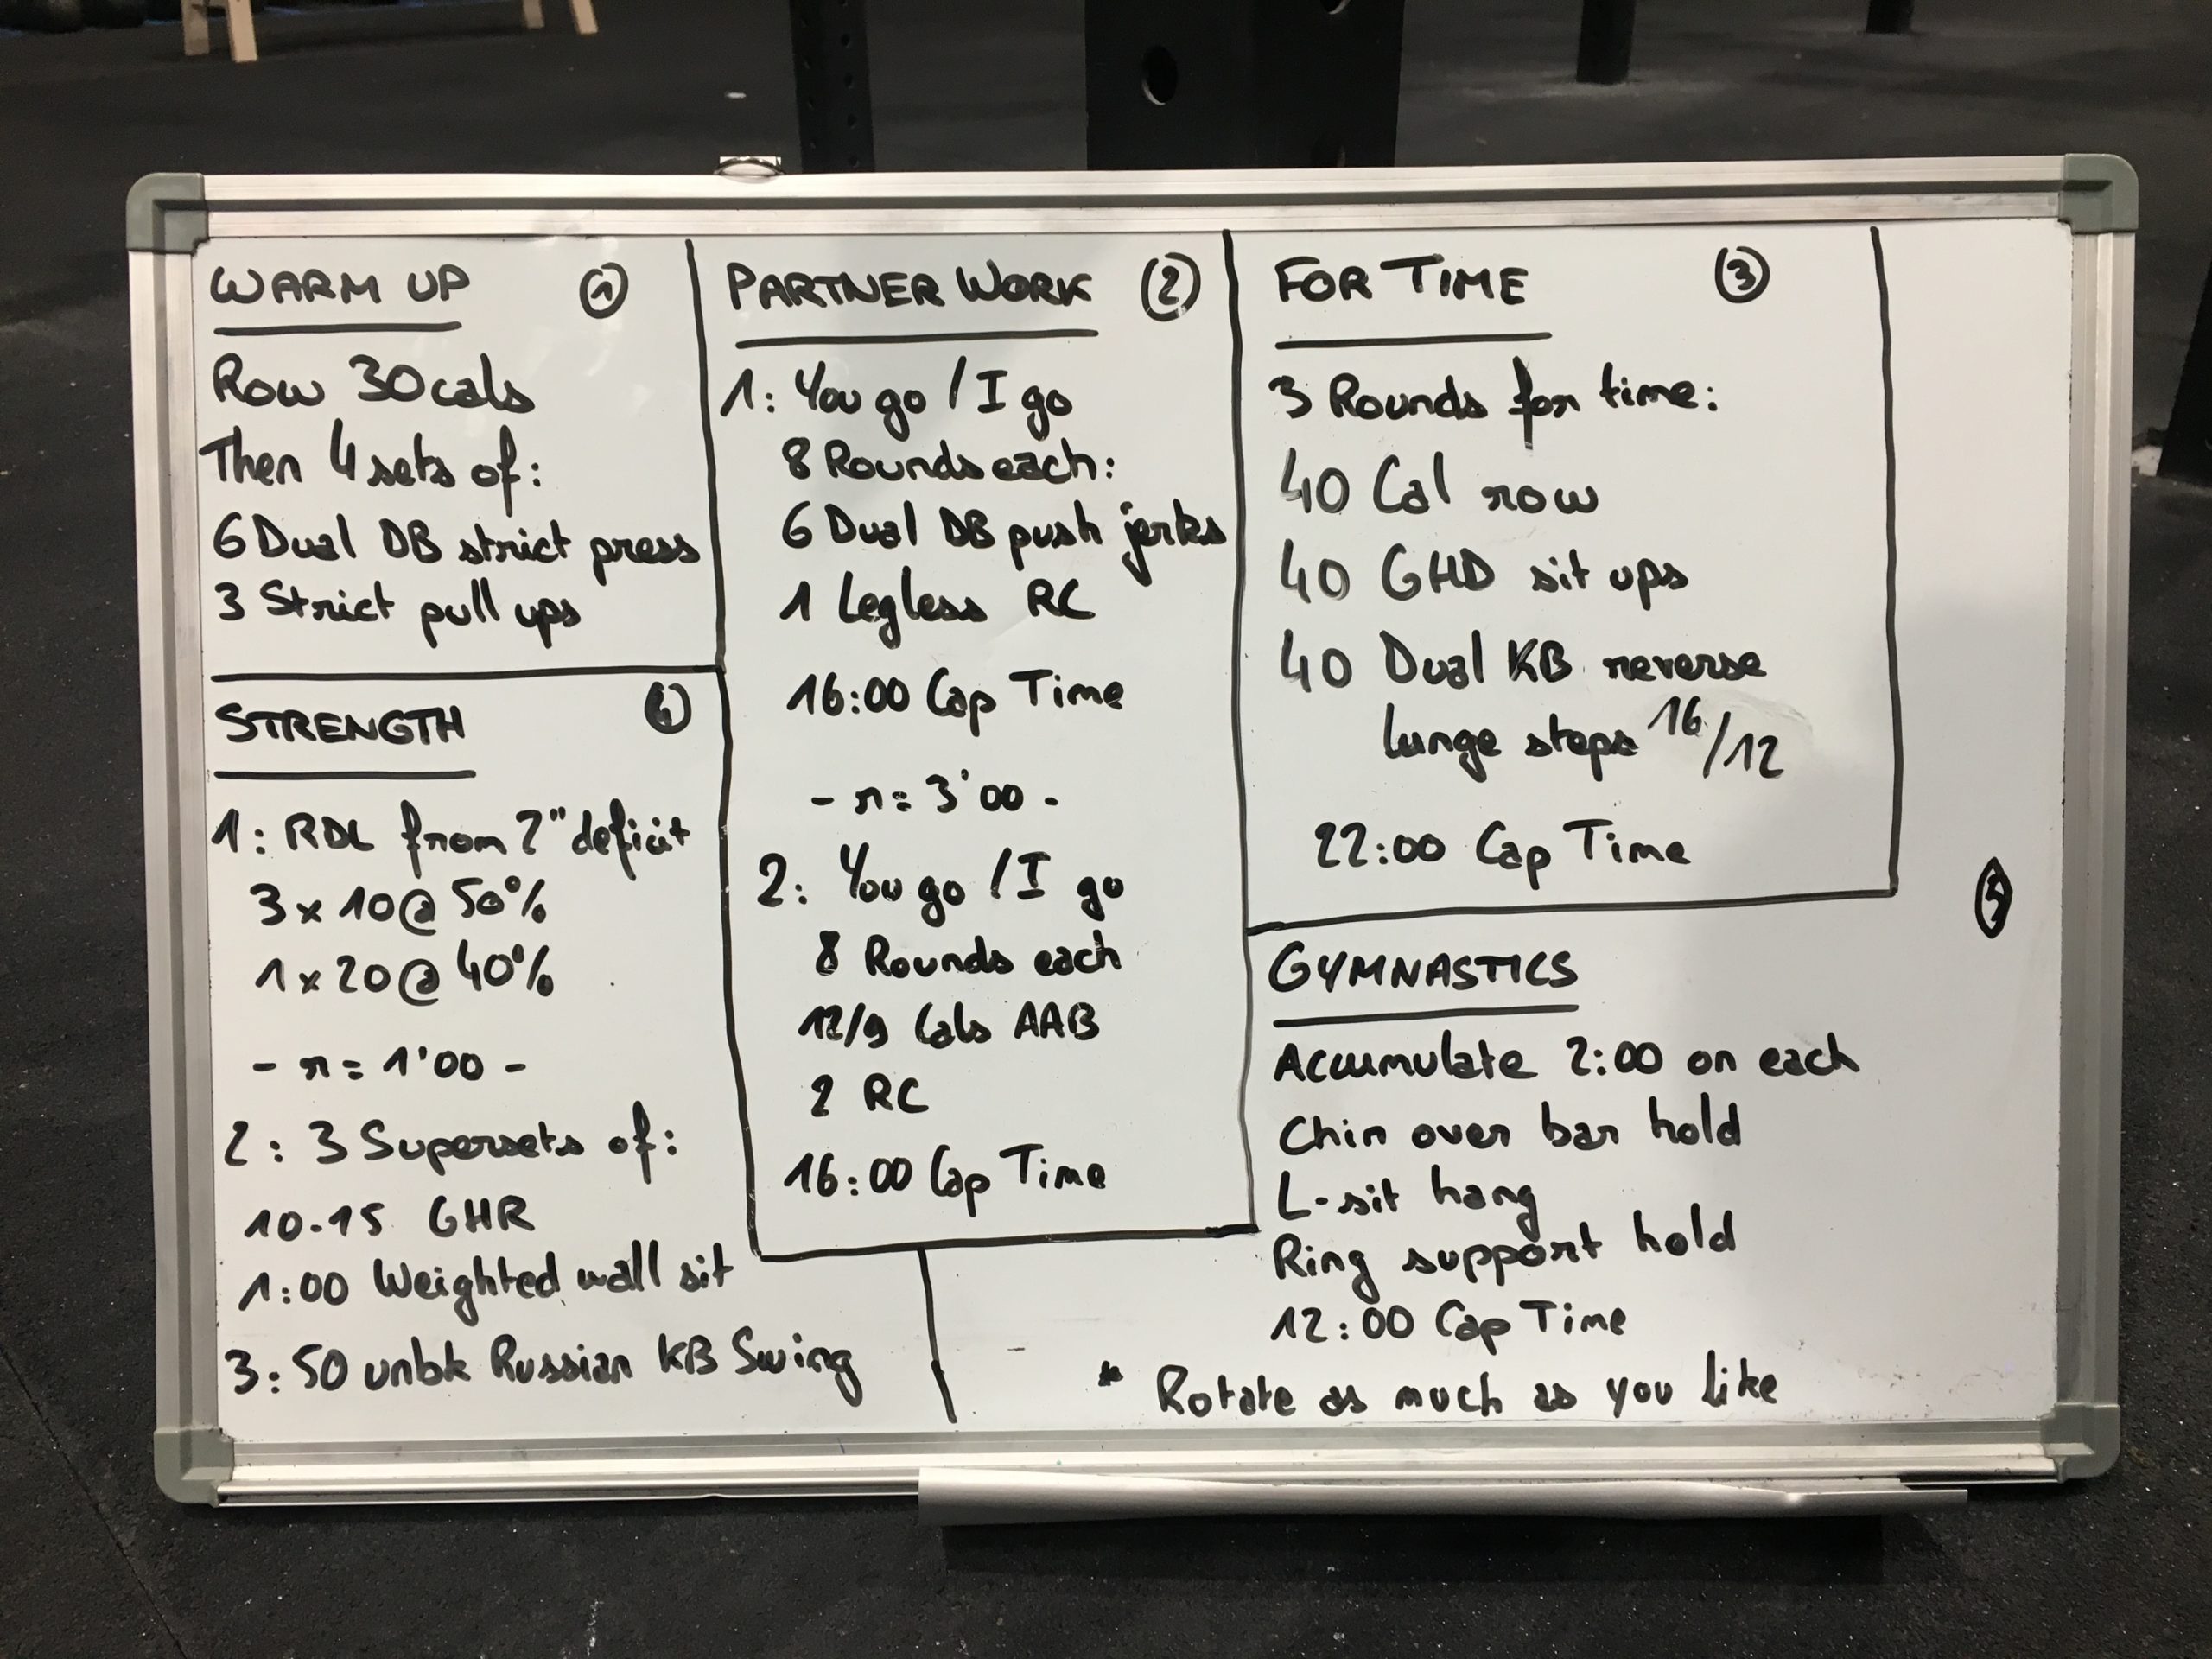 WARM UP 1
Row 30 cals
Then 4 sets of:
6 Dual DB strict press
3 Strict pull ups
PARTNER WORK 2
1: You go / I go
8 Rounds each:
6 Dual DB push jerks
1 Legless RC
16:00 Cap Time
- r = 3'00 -
2: You go / I go
8 Rounds each
12/9 Cals AAB
2 RC
16:00 Cap Time
FOR TIME 3
3 Rounds for time:
40 Cal row
40 GHD sit ups
40 Dual KB reverse
lunge steps 16/12
22:00 Cap Time
STRENGTH 4
1: RDL from 2" deficit
3 x 10 @ 50%
1 x 20 @ 40%
- r = 1'00 -
2: 3 Supersets of:
10-15 GHR
1:00 Weighted wall sit
3: 50 unbk Russian KB Swing
5
GYMNASTICS
Accumulate 2:00 on each
Chin over bar hold
L-sit hang
Ring support hold
12:00 Cap Time
* Rotate as much as you like